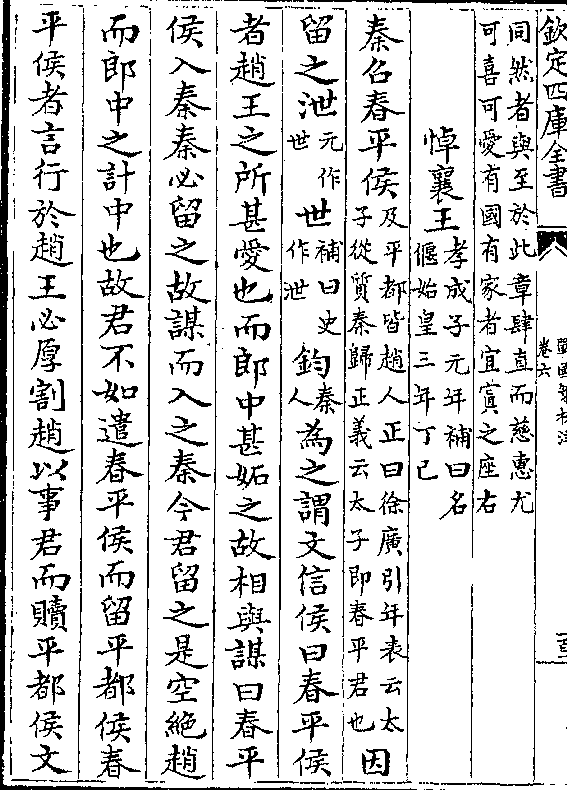 欽定四庫全書
戰國策校注
卷六
同然者與至於此章肆直而慈惠尤
可喜可愛有國有家者宜寘之座右
悼襄王孝成子元年補曰名
偃始皇三年丁巳
秦召春平侯及平都皆趙人正曰徐廣引年表云太
子從質秦歸正義云太子即春平君也因
留之泄元作
世世補曰史
作泄鈞秦
人為之謂文信侯曰春平侯
者趙王之所甚愛也而郎中甚妬之故相與謀曰春平
侯入秦秦必留之故謀而入之秦今君留之是空絶趙
而郎中之計中也故君不如遣春平侯而留平都侯春
平侯者言行於趙王必厚割趙以事君而贖平都侯文